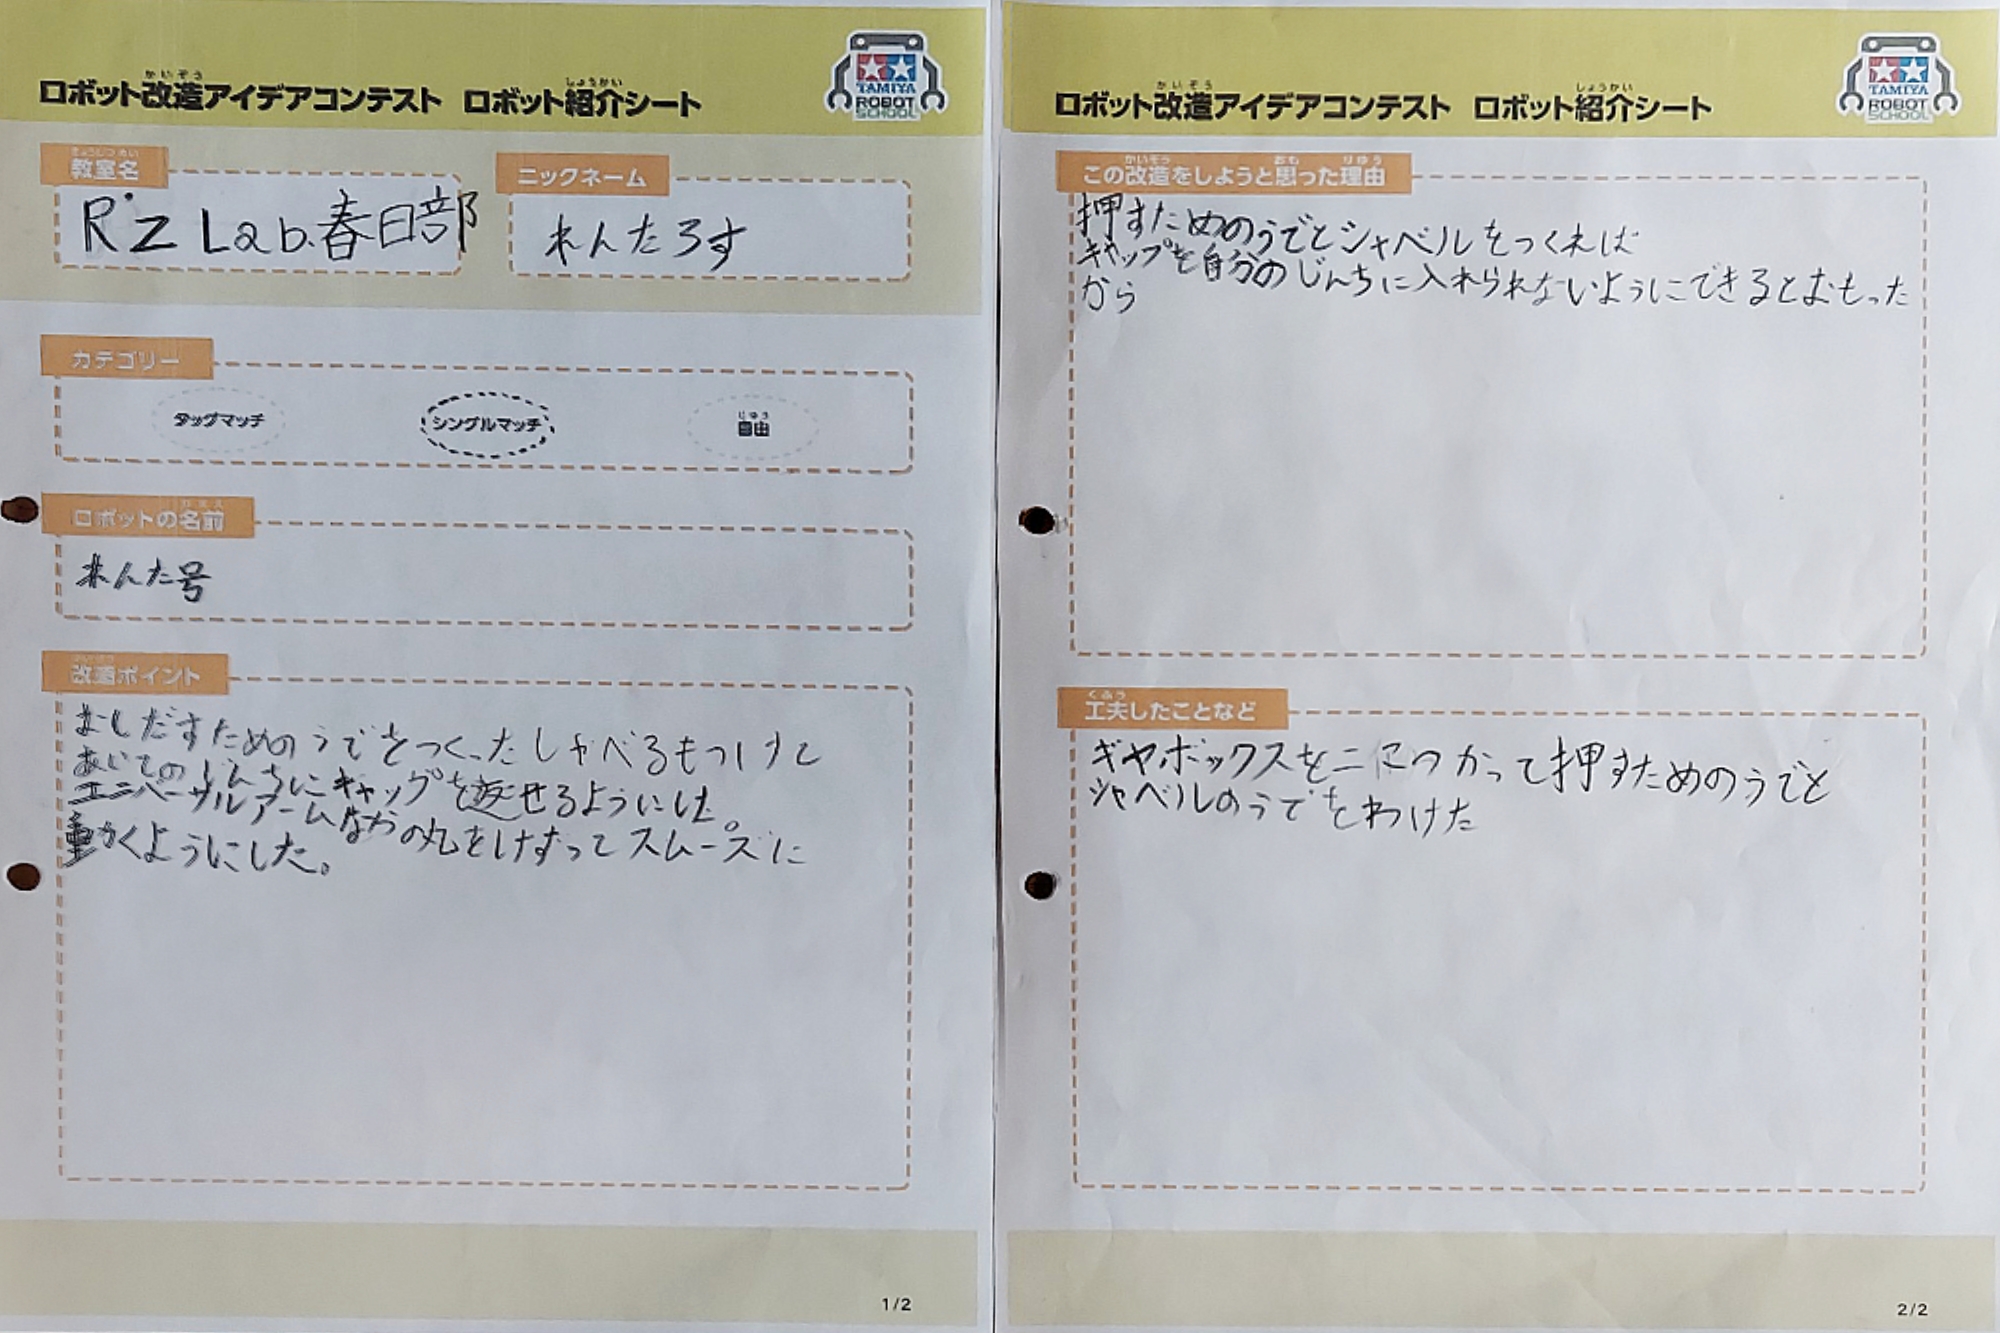 ロボット改造アイデアコンテスト ロボット紹介シート
かいぞう
しょうかい
TAMIYA
ROBOT
SCHOOL
きょうしつ めい
教室名
R'z Lab.春日部
ニックネーム
れんたろす
カテゴリー
タッグマッチ
シングルマッチ
じゆう
自由
なまえ
ロボットの名前
れんた号
かいぞう
改造ポイント
おしだすためのうでをつくったしゃべるもつけて
あいてのじんちにキャップを返せるようにした。
ユニバーサルアームなかの丸をけずってスムーズに
動かくようにした。
1/2
ロボット改造アイデアコンテスト ロボット紹介シート
かいぞう
しょうかい
TAMIYA
ROBOT
SCHOOL
かいぞう
おも
りゆう
この改造をしようと思った理由
押すためのうでとシャベルをつくれば
キャップを自分のじんちに入れられないようにできるとおもった
から
くふう
工夫したことなど
ギヤボックスを二につかって押すためのうでと
シャベルのうでをわけた
2/2